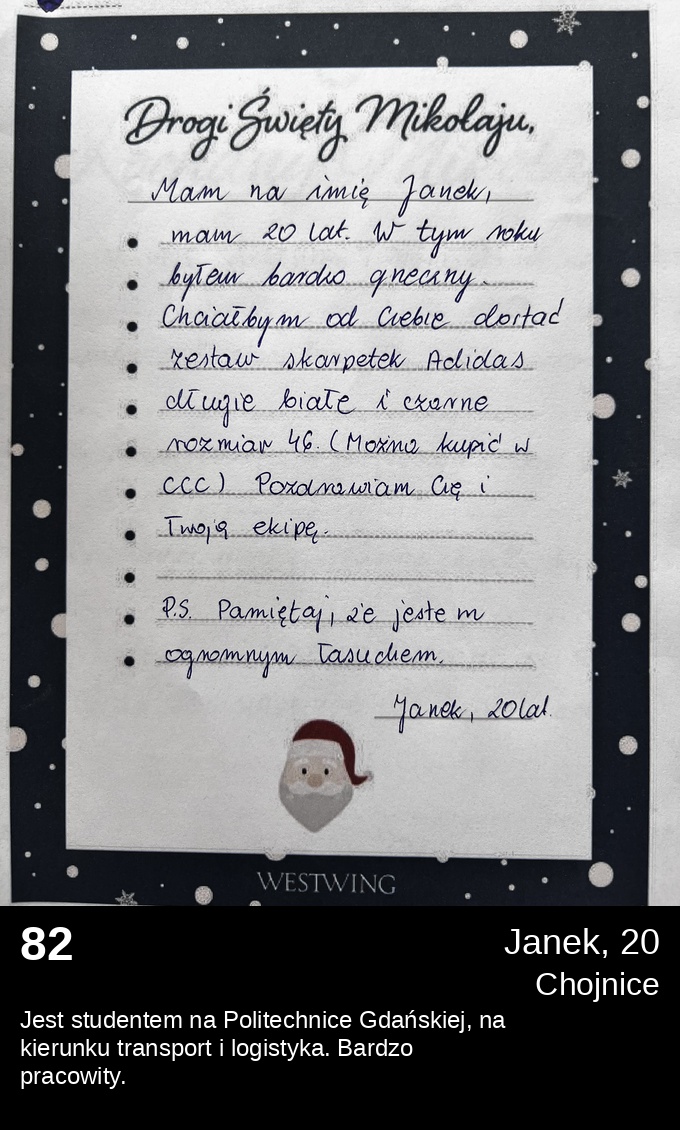 Drogi Święty Mikołaju,
Mam na imię Janek,
mam 20 lat. W tym roku
byłem bardzo grzeczny.
Chciałbym od Ciebie dostać
zestaw skarpetek Adidas
długie białe i czarne
rozmiar 46. (Można kupić w
CCC) Pozdrawiam Cię i
Twoją ekipę.
P.S. Pamiętaj, że jestem
ogromnym łasuchem.
Janek, 20 lat.
WESTWING
82
Janek, 20
Chojnice
Jest studentem na Politechnice Gdańskiej, na
kierunku transport i logistyka. Bardzo
pracowity.